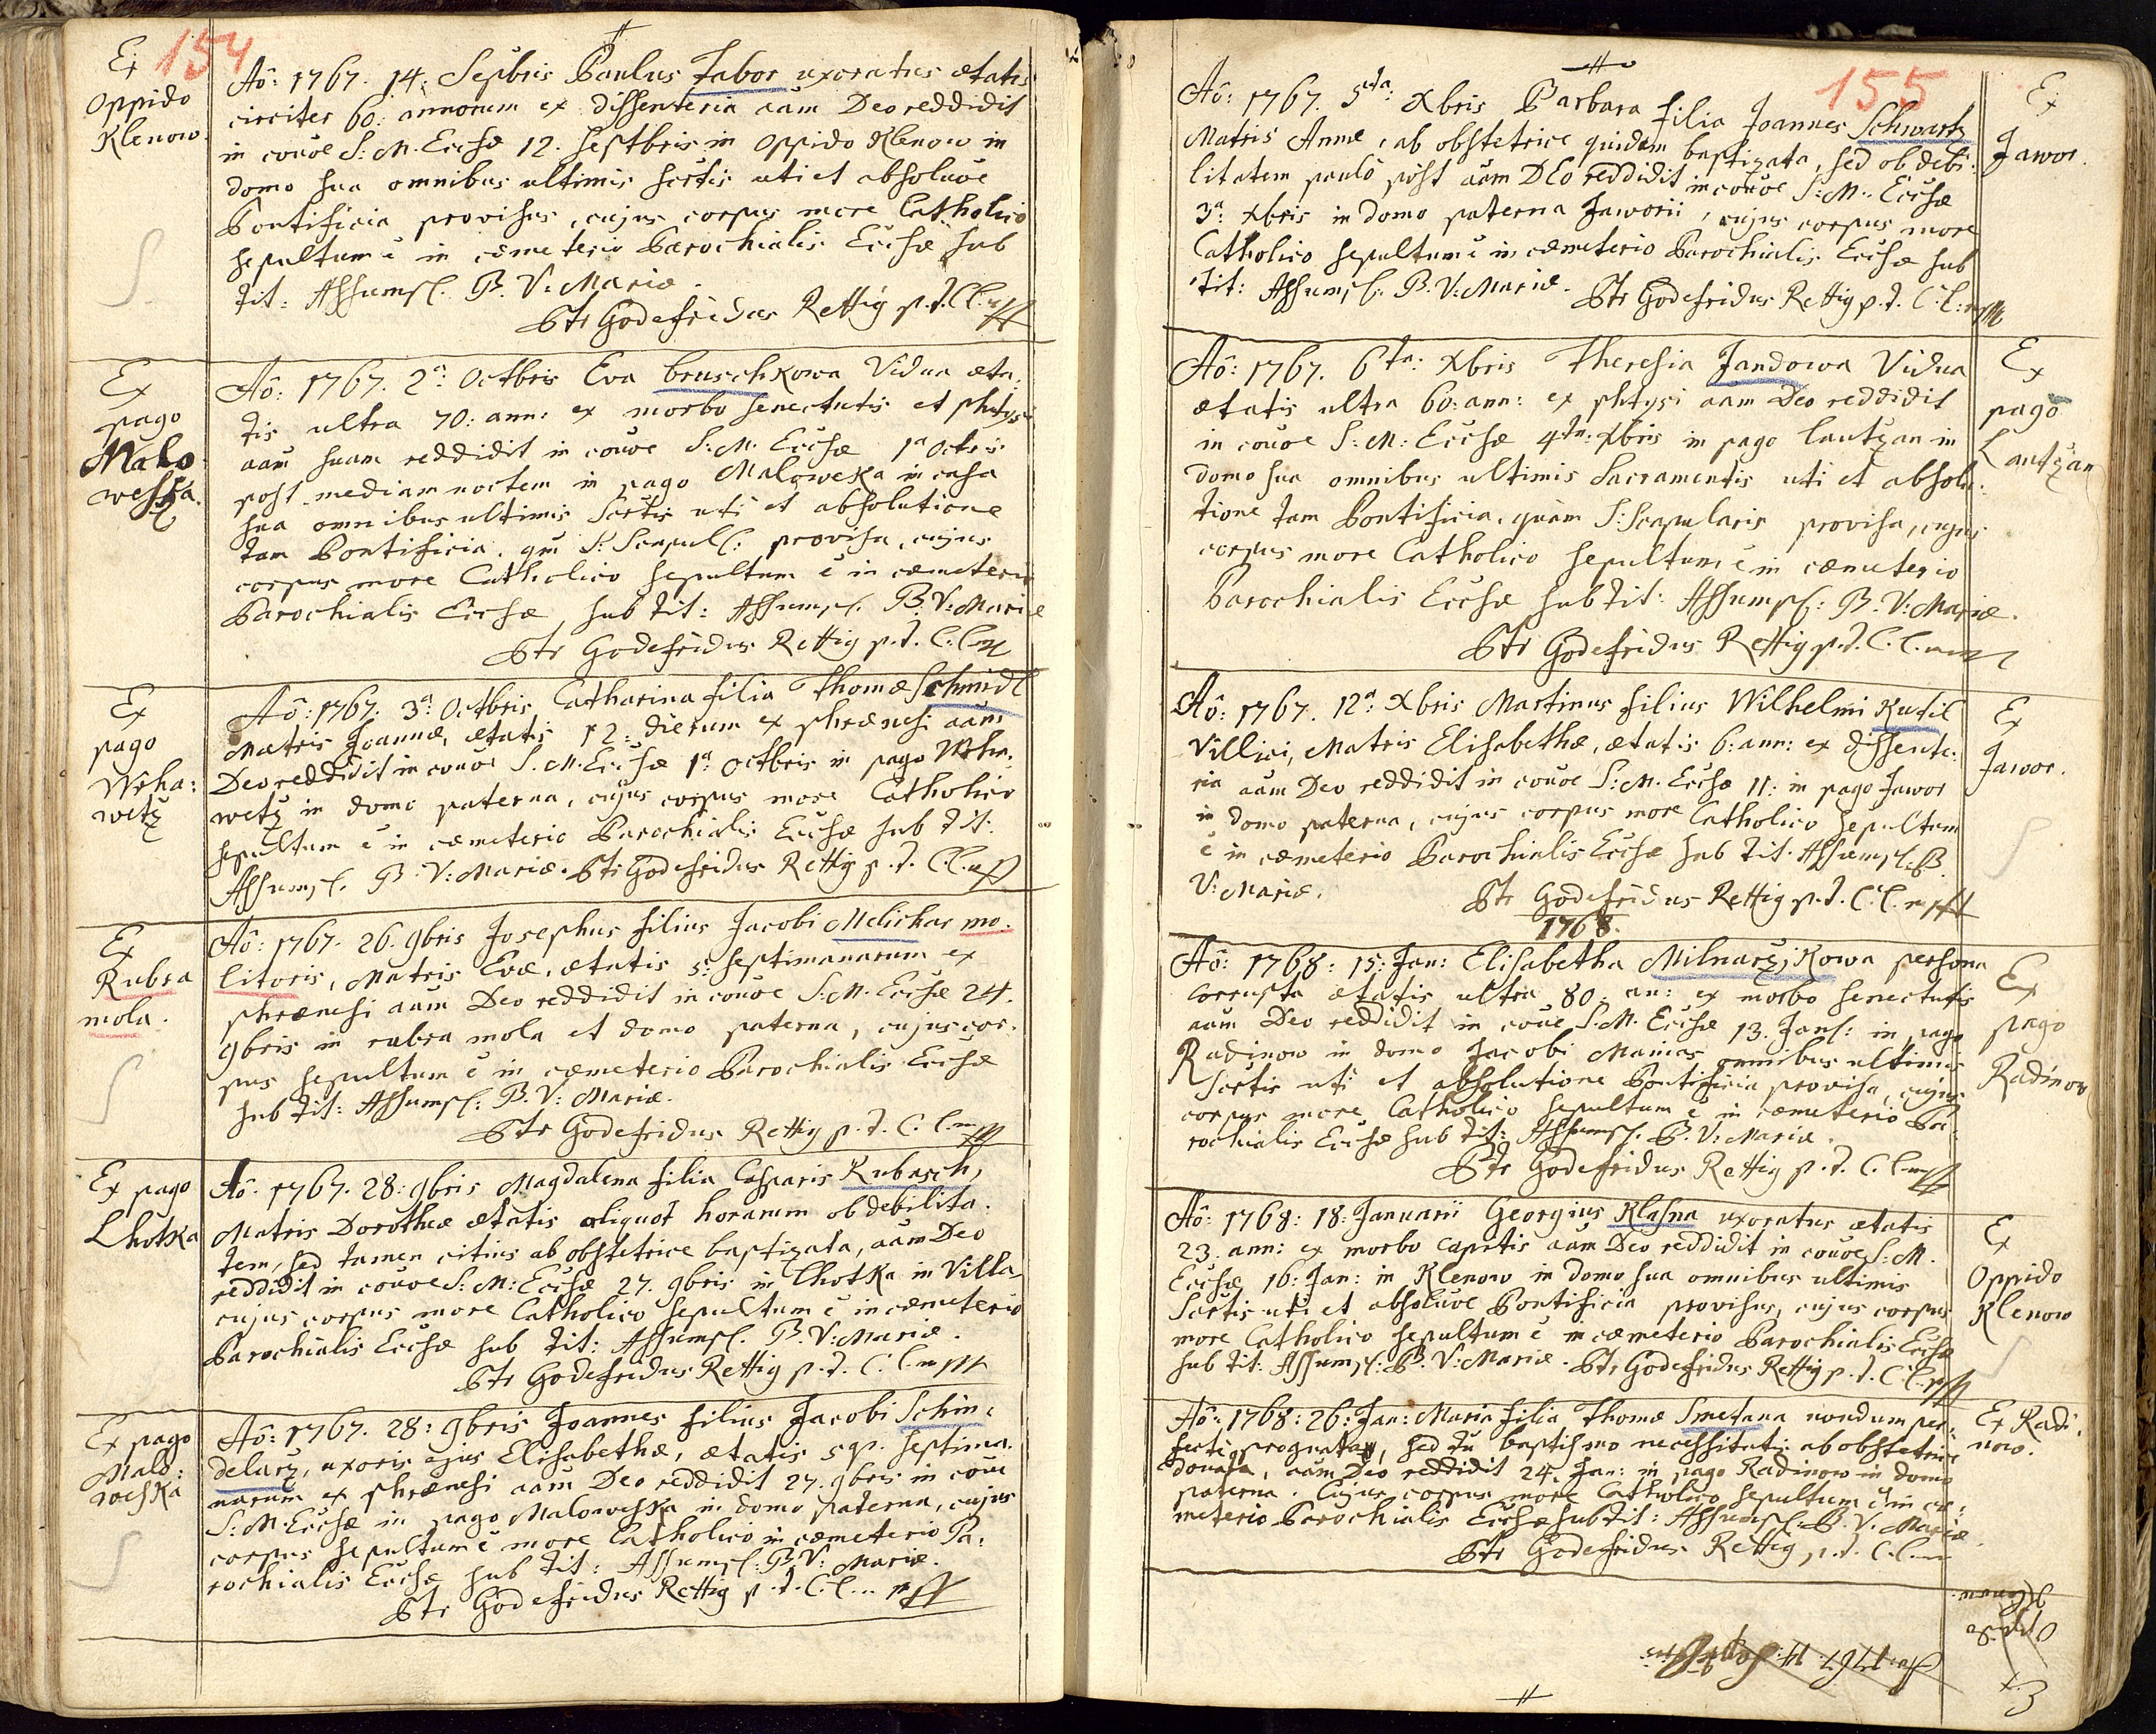 154
Ex
Oppido
Klenow.
Aô: 1767. 14. Sepbris Paulus Tabor uxoratus ætatis
circiter 60: annorum ex dissenteria aãm Deo reddidit
in coũoe S: M. Ecchæ 12. Septbris in Oppido Klenow in
domo sua omnibus ultimis sc̃rtis uti et absoluõe
Pontificia provisus, cujus corpus more Catholico
sepultum ẽ in cæmeterio Parochialis Ecchæ sub
Tit: Assumpt. B. V: Mariæ.
Ptr Godefridus Rettig p. t. C. l. mpp
Ex
pago
Malo
weska.
Aô: 1767. 2ª: Octbris Eva bruschkowa Vidua æta:
tis ultra 70: ann: ex morbo senectutis et phtysi
aãm suam reddidit in coũoe S: M. Ecchæ 1ª Octbris
post mediam noctem in pago Maloweska in casa
sua omnibus ultimis Sc̃rtis uti et absolutione
tam Pontificia, qũ S: Scapul: provisa, cujus
corpus more Catholico sepultum ẽ in cæmeterio
Parochialis Ecchæ sub tit: Assumpt. B. V: Mariæ
Ptr Godefridus Rettig p. t. C. l. mp
Ex
pago
Wrha:
wetz
Aô: 1767. 3ª: Octbris Catharina filia Thomæ Schmidl
Matris Joannæ, ætatis 12: dierum ex phrænesi aãm
Deo reddidit in coũoe S. M. Ecchæ 1ª Octbris in pago Wrha:
wetz in domo paterna, cujus corpus more Catholico
sepultum ẽ in cæmeterio Parochialis Ecchæ sub tit:
Assumpt. B. V: Mariæ. Ptr Godefridus Rettig p. t. C. l. mp
Ex
Rubra
mola.
Aô: 1767. 26. 9bris Josephus filius Jacobi Melichar mo:
litoris, Matris Evæ, ætatis 5: septimanarum ex
phrænesi aãm Deo reddidit in coũoe S: M. Ecchæ 24.
9bris in rubra mola et domo paterna, cujus cor:
pus sepultum ẽ in cæmeterio Parochialis Ecchæ
sub tit: Assumpt: B. V: Mariæ.
Ptr Godefridus Rettig p. t. C. l. mpp
Ex pago
Lhotka
Aô: 1767. 28: 9bris Magdalena filia Casparis Kubasch,
Matris Dorotheæ ætatis aliquot horarum ob debilita:
tem, sed tamen citius ab obstetrice baptizata, aãm Deo
reddidit in coũoe S: M: Ecchæ 27. 9bris in Lhotka in Villa,
cujus corpus more Catholico sepultum ẽ in cæmeterio
Parochialis Ecchæ sub tit: Assumpt. B. V: Mariæ.
Ptr Godefridus Rettig p. t. C. l. mpp
Ex pago
Malo:
weska
Aô: 1767. 28: 9bris Joannes filius Jacobi Schin:
delarz, uxoris ejus Elisabethæ, ætatis 5 qr. septima:
narum ex phrænesi aãm Deo reddidit 27. 9bris in coũe
S: M. Ecchæ in pago Maloweska in domo paterna, cujus
corpus sepultum ẽ more Catholico in cæmeterio Pa:
rochialis Ecchæ sub tit: Assumpt: B. V: Mariæ.
Ptr Godefridus Rettig p. t. C. l. mpp
155
Ex
Jawor.
Aô: 1767. 5ta: Xbris Barbara filia Joannes Schwartz
Matris Annæ, ab obstetrice quidem baptizata, sed ob debi:
litatem paulò post aãm DEo reddidit in coũoe S: M: Ecchæ
3ª: Xbris in domo paterna Jaworii, cujus corpus more
Catholico sepultum ẽ in cæmeterio Parochialis Ecchæ sub
tit: Assumpt: B. V: Mariæ. Ptr Godefridus Rettig p. t. C. l. mpp
Ex
pago
Lautzan
Aô: 1767. 6ta: Xbris Theresia Jandowa Vidua
ætatis ultra 60: ann: ex phtysi aãm Deo reddidit
in coũoe S: M: Ecchæ 4ta: Xbris in pago Lautzan in
domo sua omnibus ultimis Sacramentis uti et absolu:
tione tam Pontificia, quàm S: Scapularis provisa, cujus
corpus more Catholico sepultum ẽ in cæmeterio
Parochialis Ecchæ sub tit: Assumpt: B. V: Mariæ.
Ptr Godefridus Rettig p. t. C. l. mp
Ex
Jawor.
Aô: 1767. 12ª Xbris Martinus filius Wilhelmi Kutil
Villici, Matris Elisabethæ, ætatis 6: ann: ex dissente:
ria aãm Deo reddidit in coũoe S: M. Ecchæ 11: in pago Jawor
in domo paterna, cujus corpus more Catholico sepultum
ẽ in cæmeterio Parochialis Ecchæ sub tit: Assumpt: B.
V: Mariæ. Ptr Godefridus Rettig p. t. C. l. mpp
1768.
Ex
pago
Radinow
Aô: 1768: 15: Jan: Elisabetha Milnarzikowa persona
corrupta ætatis ultra 80: an: ex morbo senectutis
aãm Deo reddidit in coũe S. M. Ecchæ 13. Jan: in pago
Radinow in domo Jacobi omnibus ultimis
Sc̃rtis uti et absolutione Pontificia provisa, cujus
corpus more Catholico sepultum ẽ in cæmeterio Pa:
rochialis Ecchæ sub tit: Assumpt. B. V: Mariæ.
Ptr Godefridus Rettig p. t. C. l. mpp
Ex
Oppido
Klenow
Aô: 1768: 18: Januarii Georgius Klasna uxoratus ætatis
23. ann: ex morbo capitis aãm Deo reddidit in coũoe S. M.
Ecchæ 16: Jan: in Klenow in domo sua omnibus ultimis
Sc̃rtis uti et absoluõe Pontificia provisus, cujus corpus
more Catholico sepultum ẽ in cæmeterio Parochialis Ecchæ
sub tit: Assumpt: B. V: Mariæ. Ptr Godefridus Rettig p. t. C. l. mpp
Ex Radi:
now.
Aô: 1768: 26: Jan: Maria filia Thomæ Smetana nondum per:
fectè prognata, sed tũ baptismo necessitatis ab obstetrice
donata, aãm Deo reddidit 24. Jan: in pago Radinow in domo
paterna. Cujus corpus more Catholico sepultum ẽ in cæ:
meterio Parochialis Ecchæ sub tit: Assumpt: B. V. Mariæ.
Ptr Godefridus Rettig p. t. C. l. m
Ex
Oppido
Klenow.
Aô: 1767. 14.